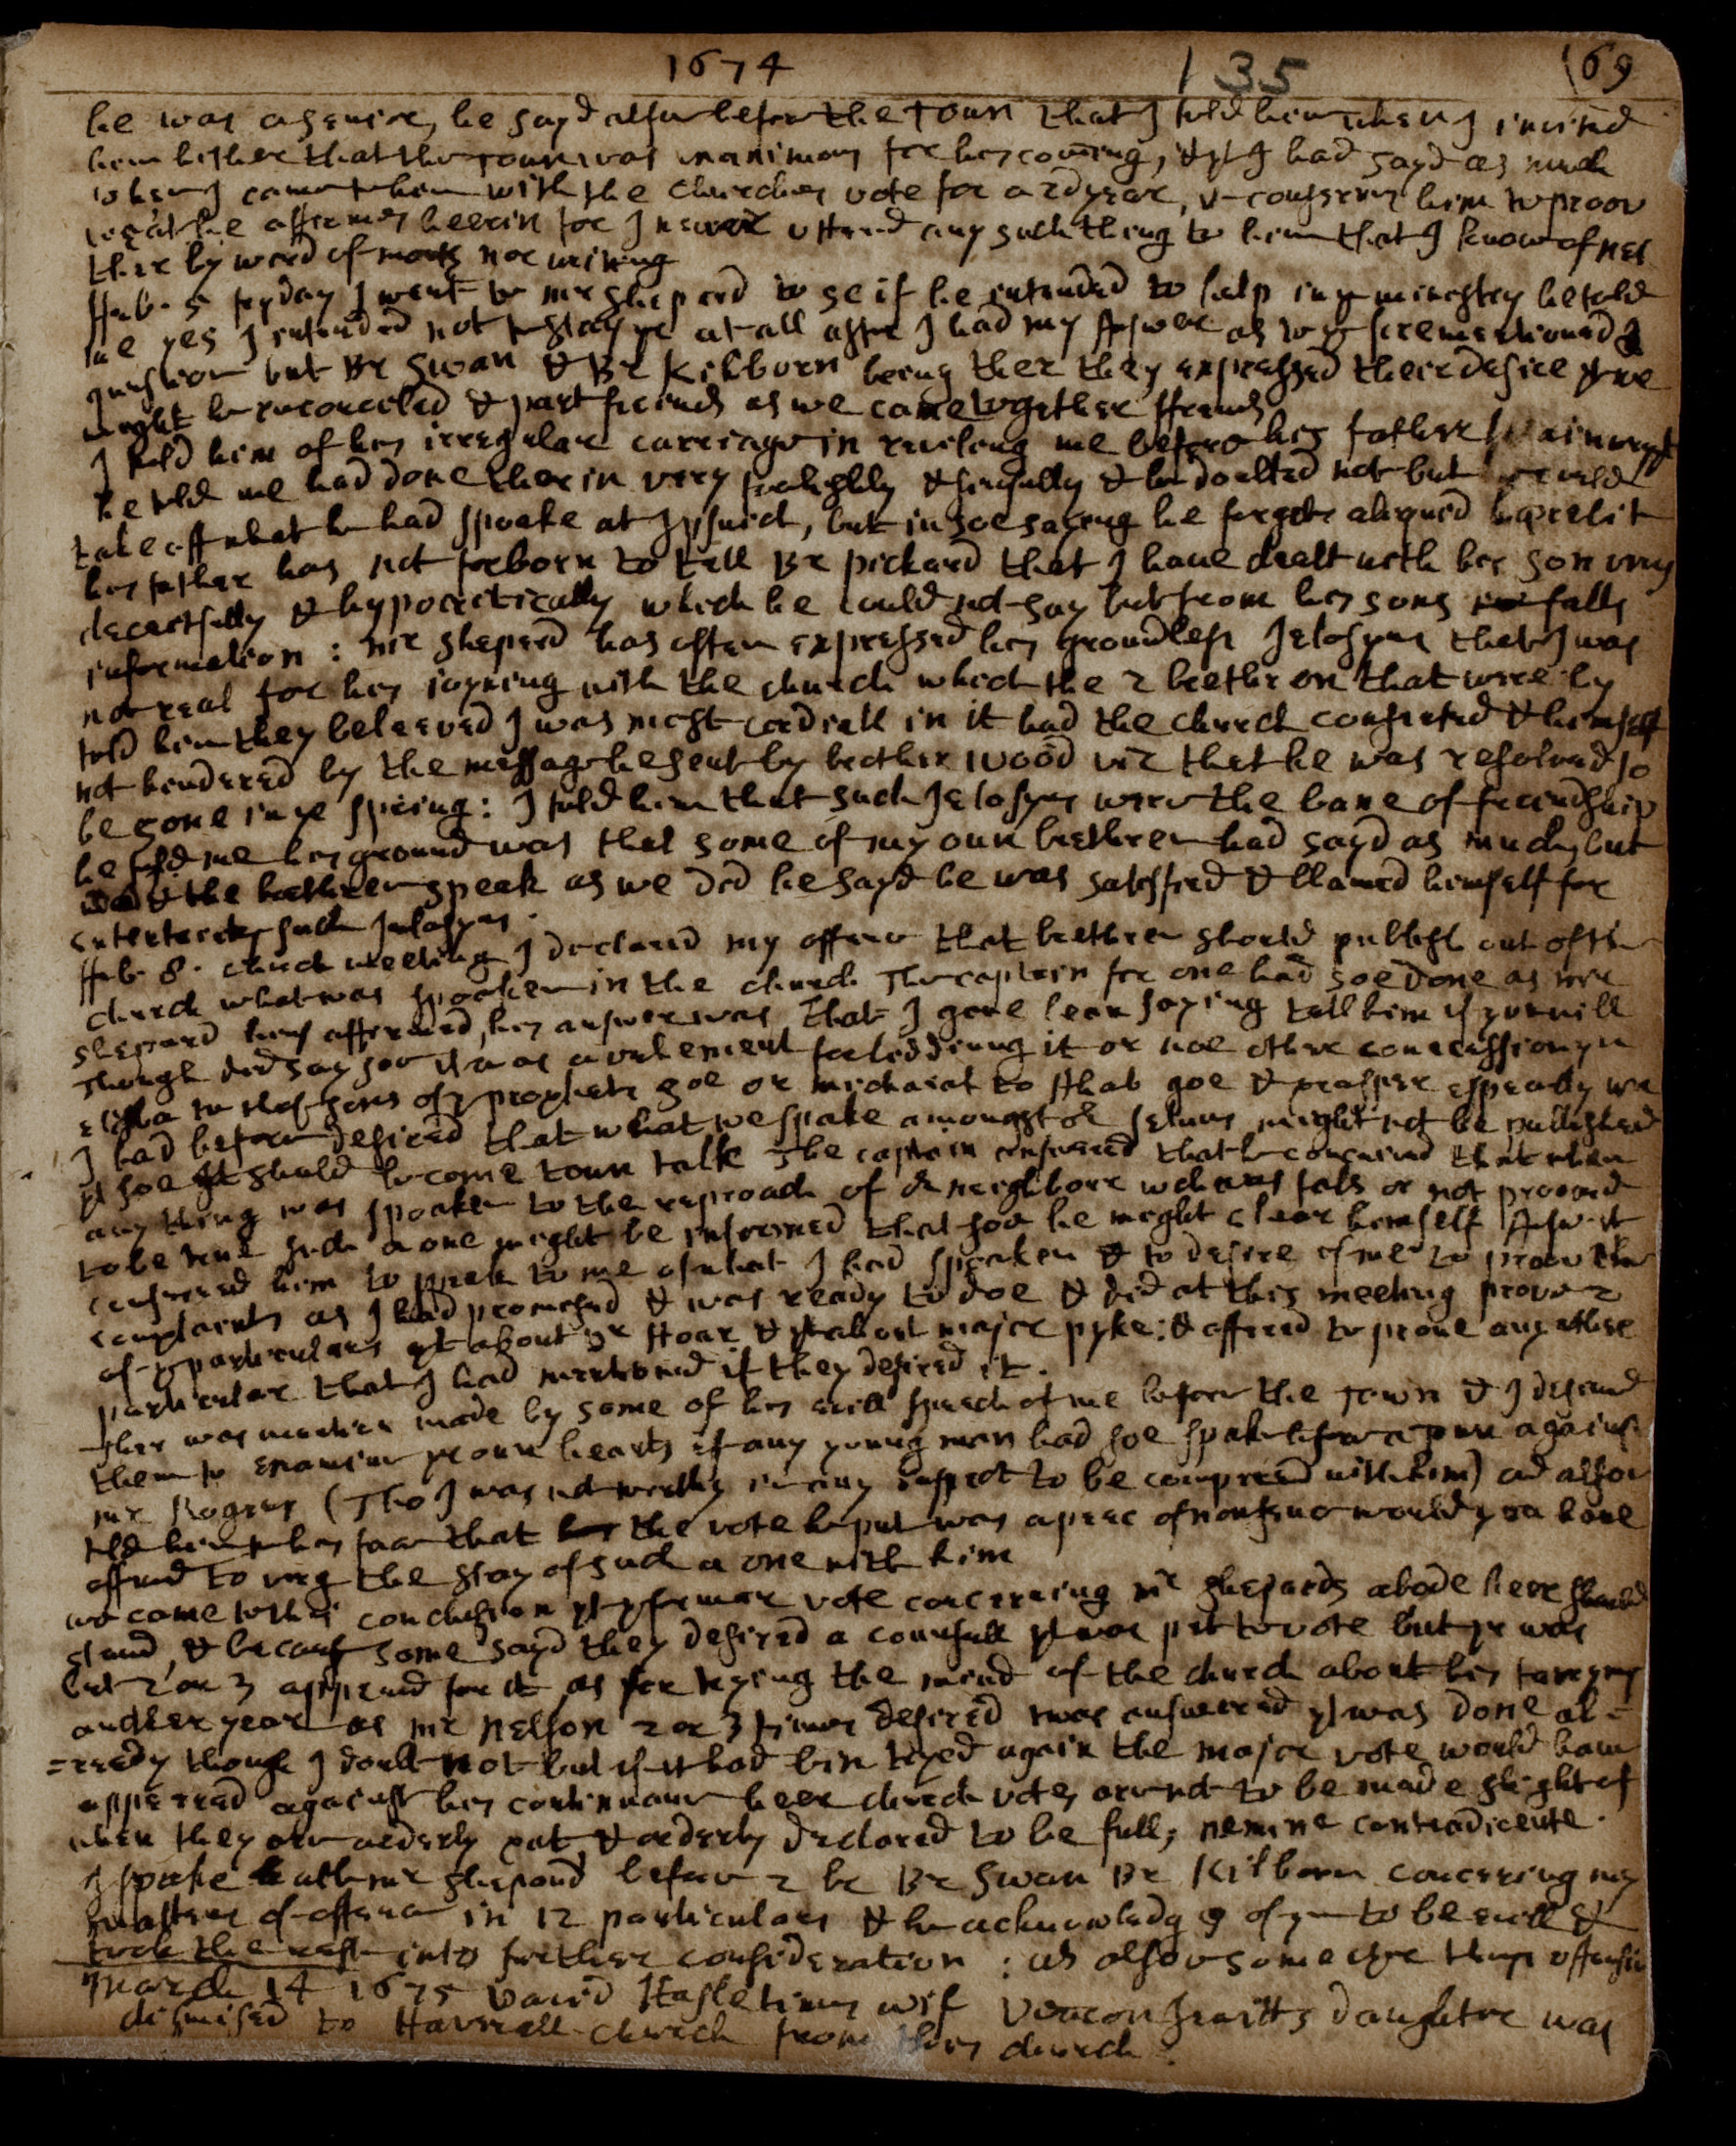 1674 135 169
he was asenior, he sayd also before the Toun that I told him when I invited
him hither that the toun was unanimous for his coming, & yt I had sayd as much
when I came to him with the churches vote for a 2d year, & conjuring him to proov
what he affirmes heerin for I never uttered any such thing to him that I know of nei
ther by word of mouth nor writing
ffeb. 5 fryday I went to mr Sheperd to se if he intended to help in ye ministry he told
me yes I intended not to stay ye at all after I had my Answer as to ye forementioned
question but Br Swan & Br Kilborn being ther they expressed their desire yt we
might be reconceled & part freinds as we came together ffreinds
I told him of his irregular carriage in reviling me before his father
he told me had done therin very foolishly & sinfully & he doubted not but he could
take off what he had spoake at Ipsuich, but in soe saying he forgets aliquid haerebit
his father has not forborn to tell Br pickard that I have dealt with his son very
deceitfully & hypocritically which he could not say but from his sons falls
information : mr Sheperd has often expressed his groundless Jelosyes that I was
not real for his joyning with the church which the 2 brethren that were by
told him they beleeved I was most cordiall in it had the church consented & himself
not hindered by the message he sent by brother Wood viz that he was resolved to
be gone in ye spring : I told him that such Jelosyes were the bane of freindship
he told me his ground was that some of my oun brethren had sayd as much, but
the brethren speak as we did he sayd he was satisfied & blamed himself for
entertaining such Jelosyes.
ffeb. 8. church meeting I declared my offence that brethren should publish out of the
church what was spoaken in the church The captain for one had soe done as mr
Sheperd had affirmed, his answer was That I gave leav saying tell him if you will
Though I did say soe it was a vehement forbidding it or noe other concession yn
Elisha to the sons of ye prophets goe or michaiah to Ahab goe & prosper espeacially wn
I had before desired that what we spake amongst or selves might not be published
yt soe it should become toun talk The captain answered that he conceived that when
any thing was spoaken to the reproach of a neighbour wch was fals or not prooved
to be true such a one might be informed that soe he might clear himself Answ. it
him to speak to me of what I had spoaken & to desire of me to proov the
complaints as I had promised & was ready to doe & did at this meeting prove 2
of ye particulars yt about Hoar & yt about major pyke : & offered to prove any other
particular that I had mentioned if they desired it.
Ther was mention made by some of his evill speech of me before the Town & I desired
them to examine ye oun hearts if any young man had soe spake before a Toun against
mr Rogers (Tho I was not worthy in any respect to be compared with him) and also
told him to his face that the vote he put was a peece of nonsense would you have
offered to urg the stay of such a one with him
we come to this conclusion yt ye former vote concerning mr Shepards abode heer should
stand, & because some sayd they desired a counsell yt was put to vote but yr was
but 2 or 3 appeared for it as for trying the mind of the church about his tarrying
another year as mr Nelson 2 or 3 times desired twas answered yt was done al=
=ready though I doubt not but if it had bin tryed again the major vote would have
appeered against his continuance heer church votes are not to be made slight of
when they are orderly put & orderly declared to be full, nemine contradicente.
I spake with mr Shepard before 2 br Br Swan Br Kilborn concerning my
matters of offence in 12 particulars & he acknowledg 9 of ym to be evill &
took the rest into further consideration : as also some other things offensive
March 14 1675 David Hasletines wif Deacon Jewitts daughter was
dismised to Haverell church from this church.